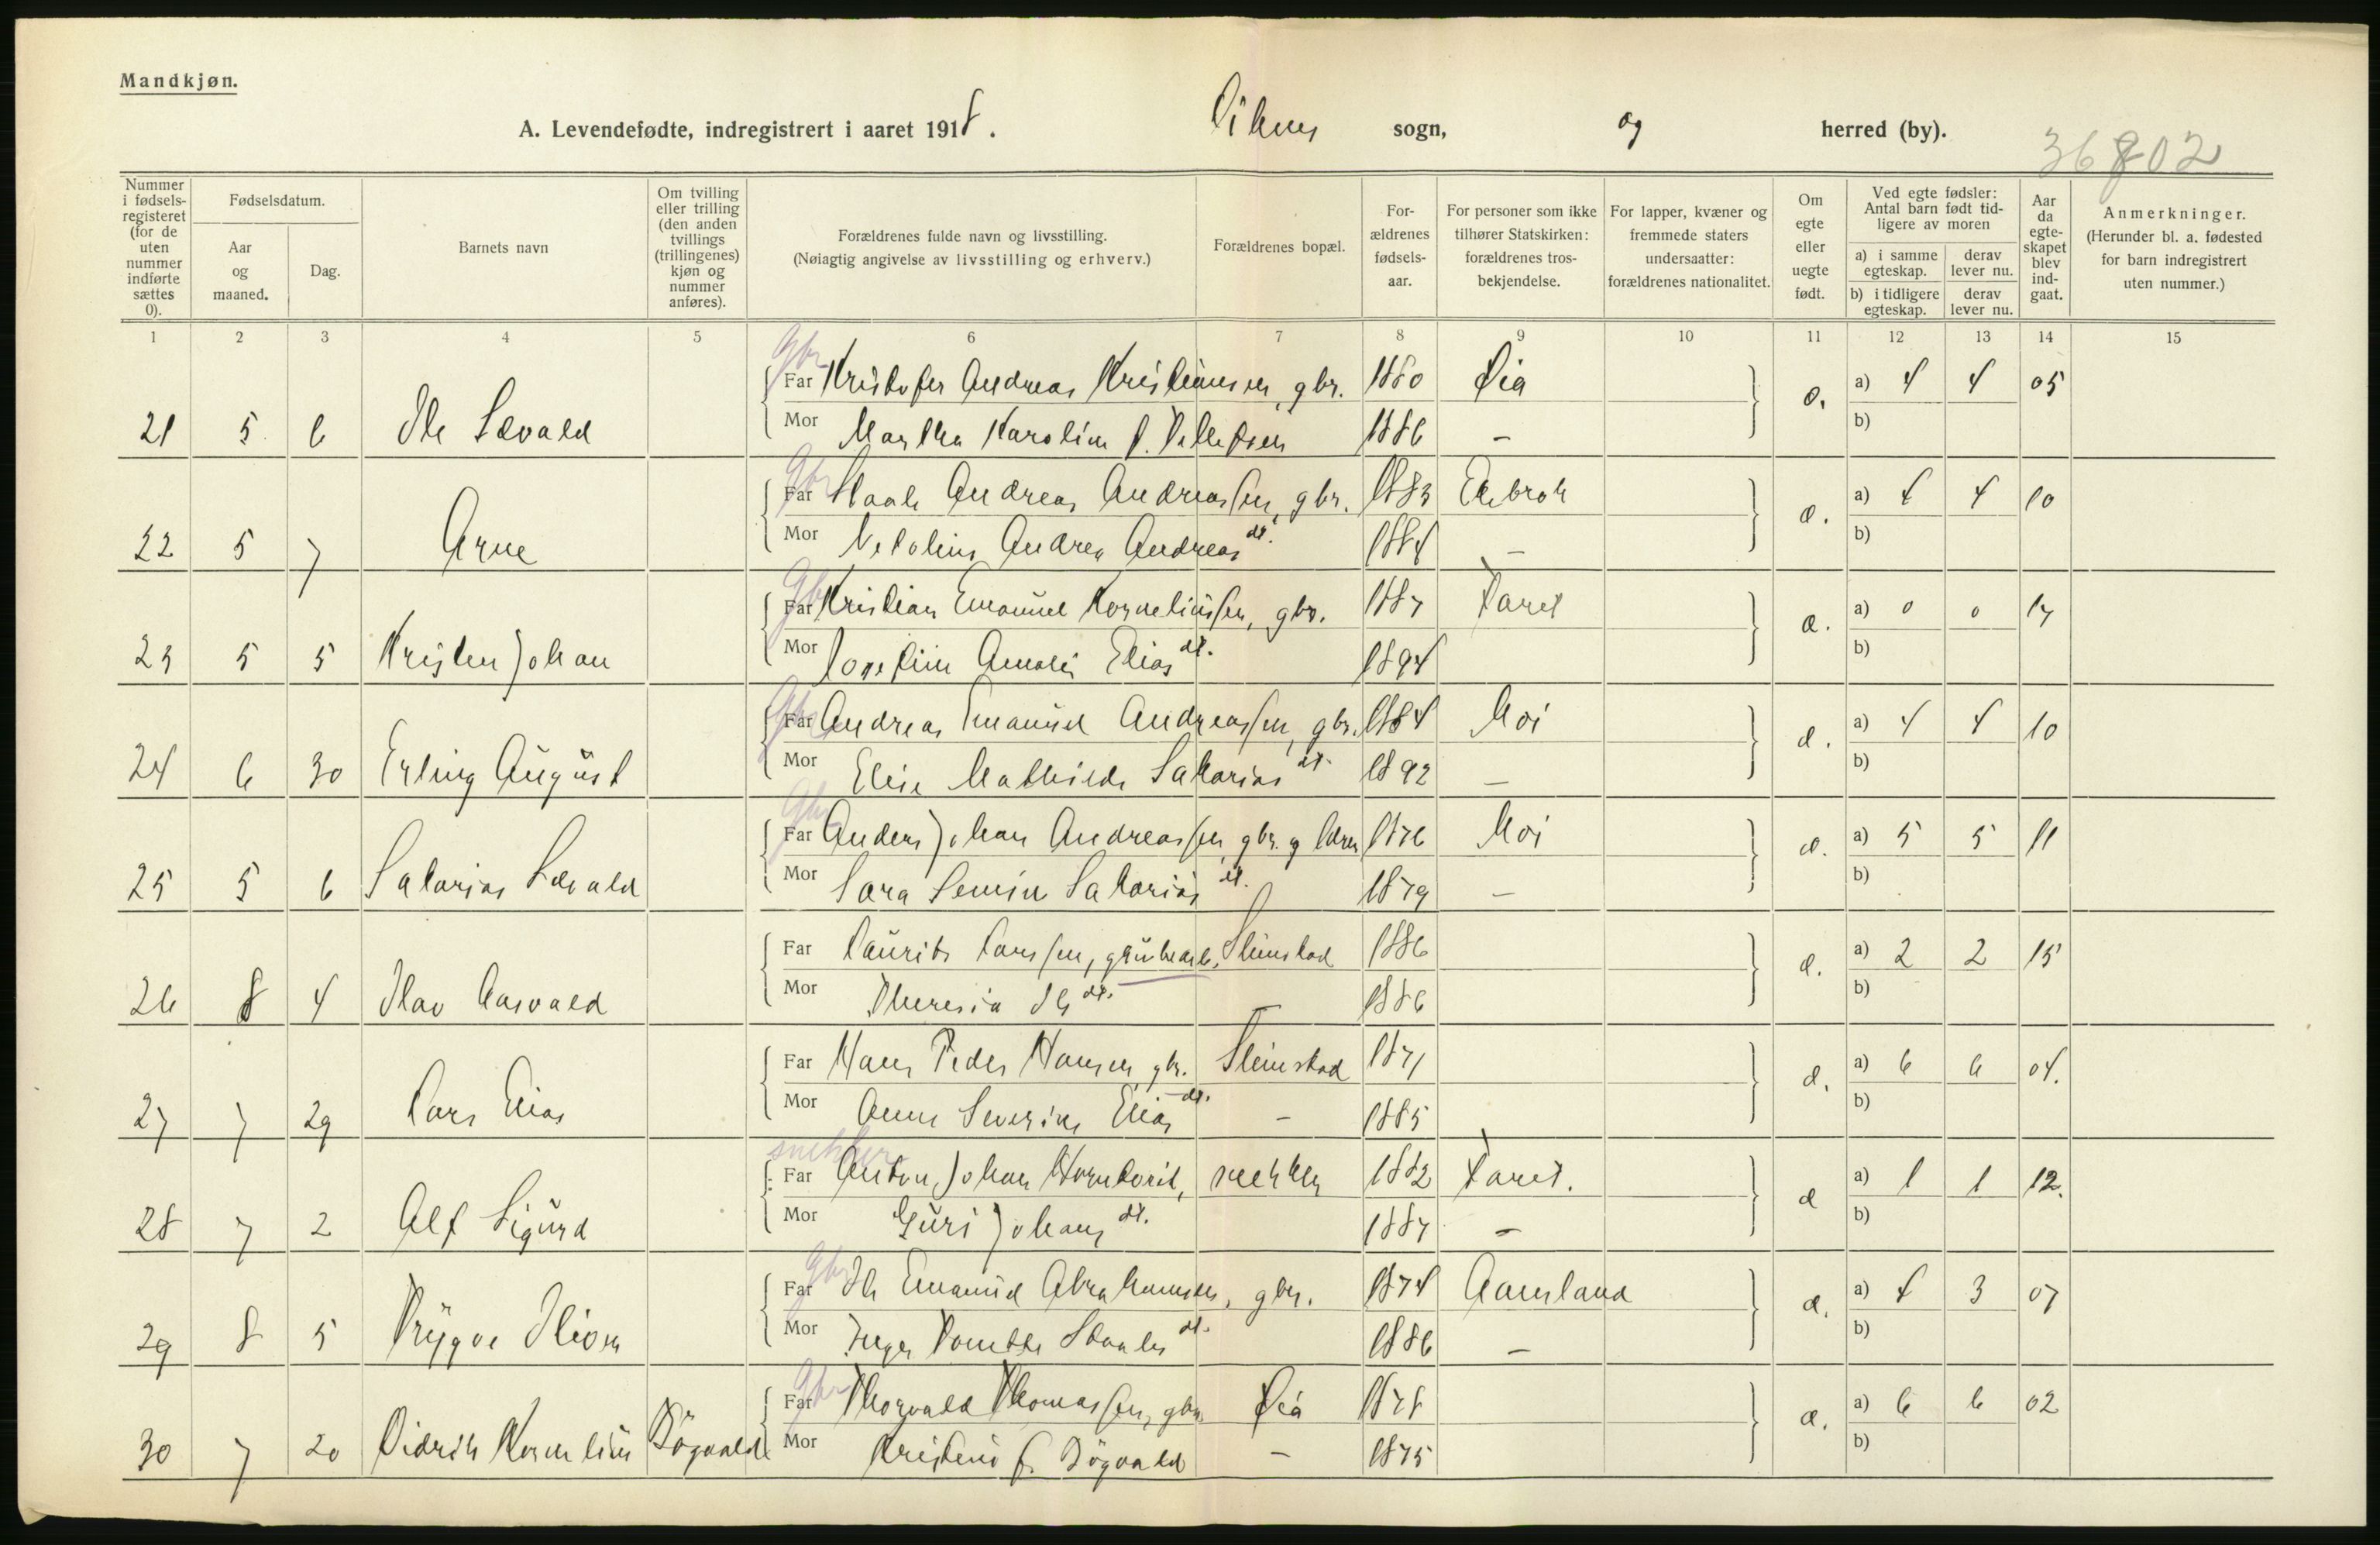 Mandkjøn.
A. Levendefødte, indregistrert i aaret 1918. sogn, og herred (by).
36802
Nummer i fødsels-registeret (for de uten nummer indførte sættes 0).
Fødselsdatum.
Aar og maaned.
Dag.
Barnets navn
Om tvilling eller trilling (den anden tvillings (trillingenes) kjøn og nummer anføres).
Forældrenes fulde navn og livsstilling.
(Nøiagtig angivelse av livsstilling og erhverv.)
Forældrenes bopæl.
For-ældrenes fødsels-aar.
For personer som ikke tilhører Statskirken: forældrenes tros-bekjendelse.
For lapper, kvæner og fremmede staters undersaatter: forældrenes nationalitet.
Om egte eller uegte født.
Ved egte fødsler: Antal barn født tid-ligere av moren
a) i samme egteskap. derav lever nu.
b) i tidligere egteskap. derav lever nu.
Aar da egte-skapet blev ind-gaat.
Anmerkninger.
(Herunder bl. a. fødested for barn indregistrert uten nummer.)
1 2 3 4 5 6 7 8 9 10 11 12 13 14 15
Gbr
Far Kristofer Andreas Kristiansen, gbr. 1880 a) 4 4 05
21 5 6 Mor Martha Karoline 1886 – b)
Gbr
Far Staale Andreas Andreassen, gbr. 1883 a) 4 4 10
22 5 7 Arne Mor Andrea Andreas dt. 1884 – b)
Gbr
Far Kristian Emanuel Korneliussen, gbr. 1887 a) 0 0 17
23 5 5 Kristen Johan Mor Josefine Amalie Elias dt. 1894 b)
Gbr
Far Andreas Emanuel Andreassen, gbr. 1884 Moi a) 4 4 10
24 6 30 Erling August Mor Elise Mathilde Sakarias dt. 1892 – b)
Gbr
Far Anders Johan Andreassen, gbr. 1876 Moi a) 5 5 11
25 5 6 Sakarias Mor Sara Sakarias dt. 1879 – b)
Far Laurits Larssen, Steinstad 1886 a) 2 2 15
26 8 4 Olav Mor Theresia dt. – 1886 b)
Far Hans Peder Hansen, gbr. Steinstad 1871 a) 6 6 04.
27 7 29 Lars Elias Mor Anne Severine Elias dt. – 1885 b)
snekker
Far Anton Johan snekker 1882 a) 1 1 12.
28 7 2 Alf Sigurd Mor Guri Johans dt. 1887 – b)
Gbr
Far Ole Emanuel Abrahamsen, gbr. 1874 Aamland a) 4 3 07
29 8 5 Trygve Mor Inger Tomette Staales dt. 1886 – b)
Gbr
Far Thorvald Thomassen, gbr. 1878 a) 6 6 02
30 7 20 Didrik Kornelius Bøgvald Mor Kristine f. Bøgvald – 1875 b)